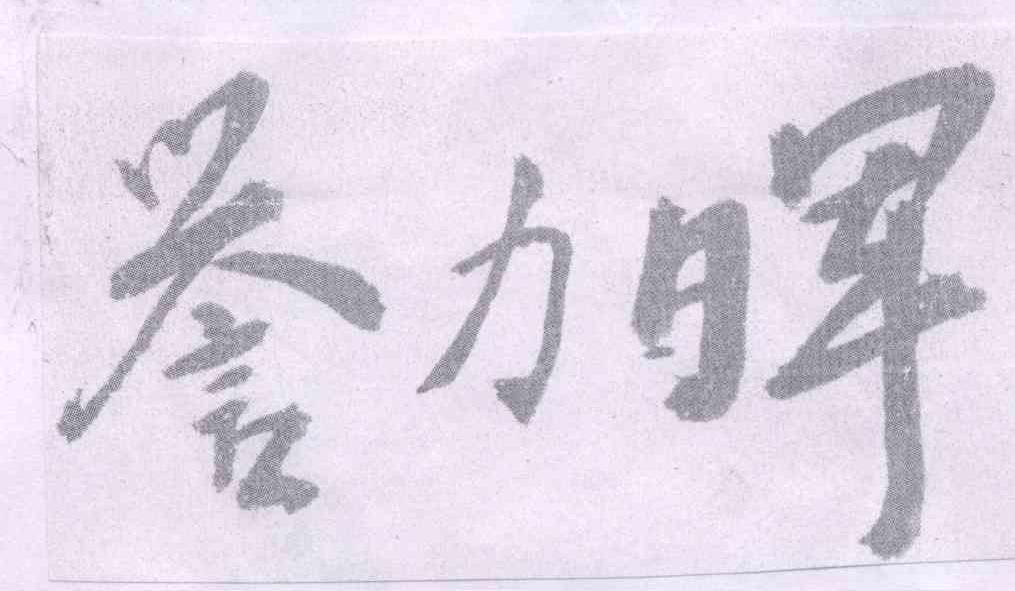 誉力晖